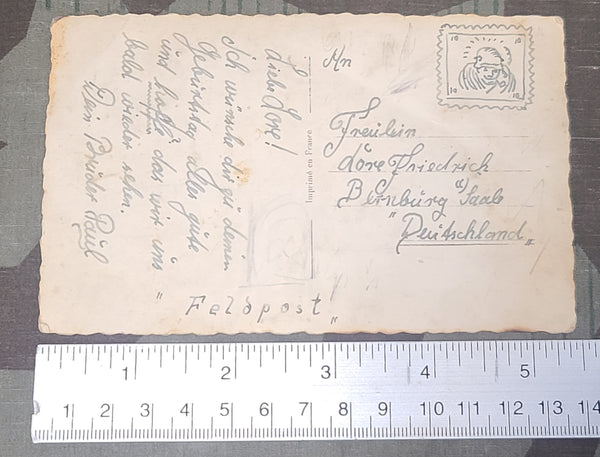 Liebe Lore!
Ich wünsche dir zu deinen
Geburtstag alles gute
und hoffe das wir uns
bald wieder sehen.
Dein Bruder Paul
An
10 10
10 10
Fräulein
Lore Friedrich
Bernburg a/Saale
"Deutschland"
Imprimé en France
"Feldpost"
1 2 3 4 5
1 2 3 4 5 6 7 8 9 10 11 12 13 14